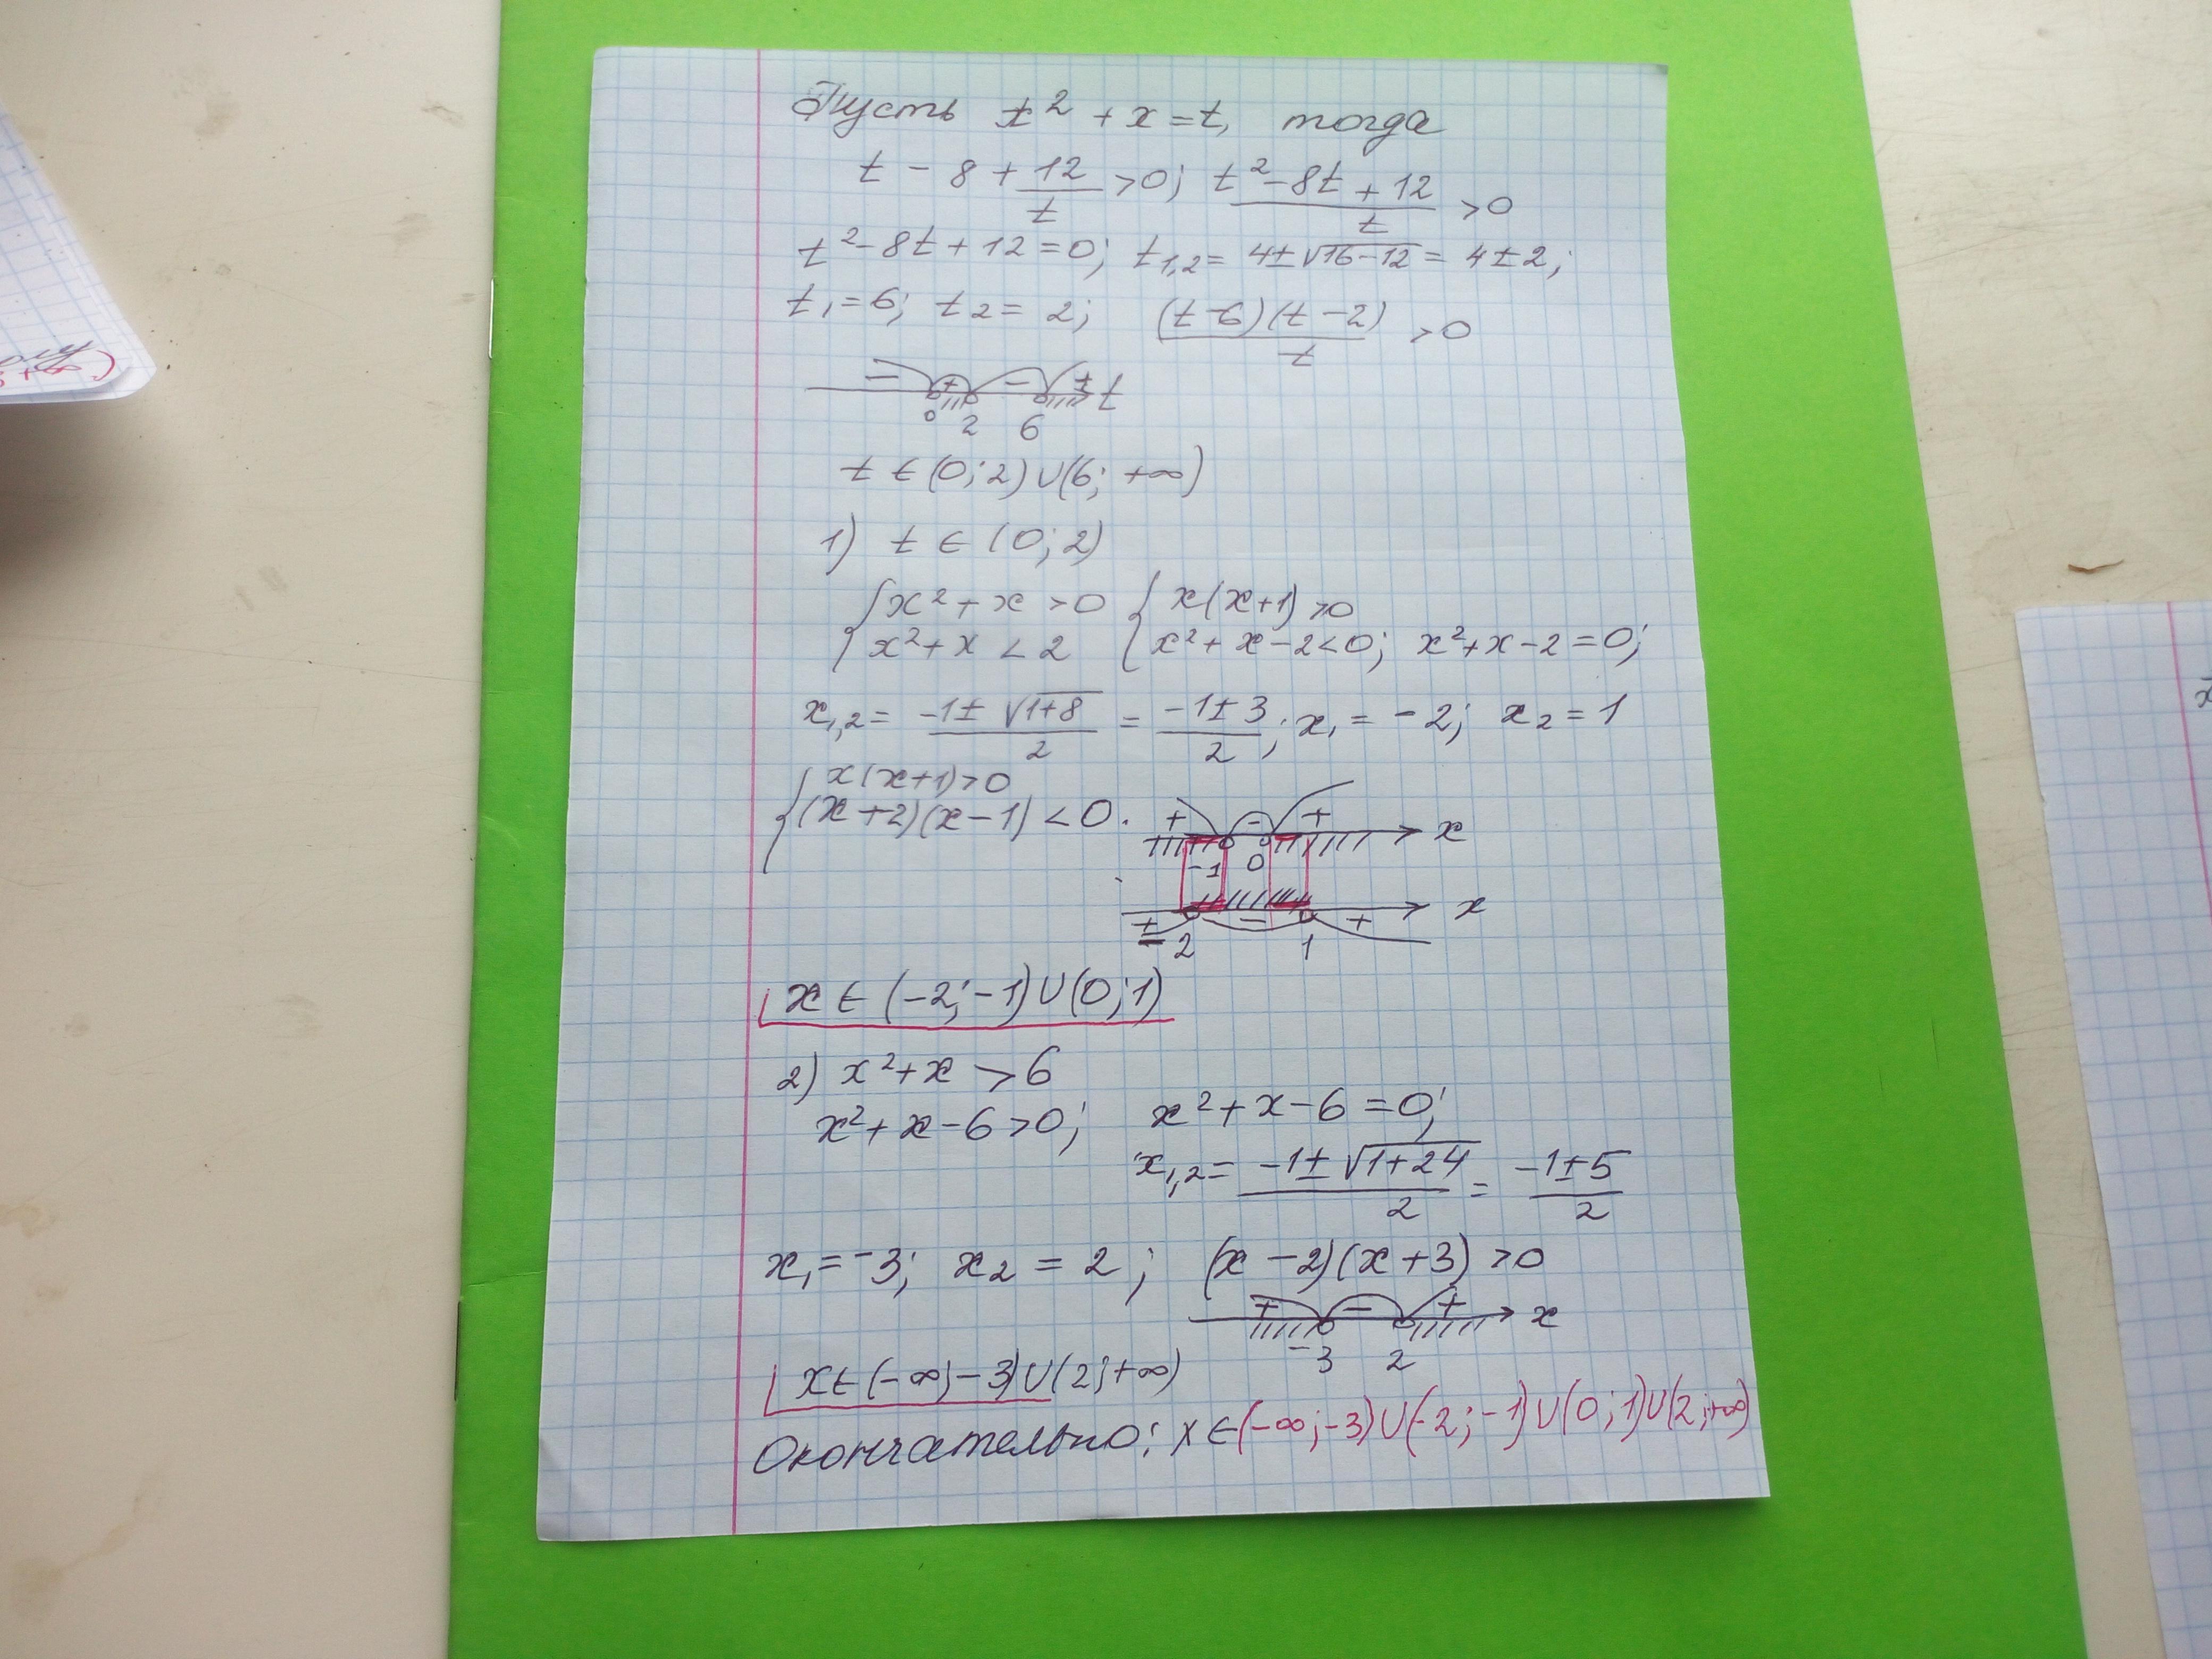 Пусть t² + x = t, тогда
t - 8 + 12/t > 0; (t² - 8t + 12)/t > 0
t² - 8t + 12 = 0; t₁,₂ = 4 ± √16-12 = 4 ± 2;
t₁ = 6; t₂ = 2; (t-6)(t-2)/t > 0
- + - + t
0 2 6
t ∈ (0; 2) ∪ (6; +∞)
1) t ∈ (0; 2)
{ x² + x > 0 { x(x+1) > 0
x² + x < 2 x² + x - 2 < 0; x² + x - 2 = 0;
x₁,₂ = (-1 ± √1+8)/2 = (-1 ± 3)/2; x₁ = -2; x₂ = 1
{ x(x+1) > 0
(x+2)(x-1) < 0.
+ - + x
-1 0
x
+ - +
-2 1
x ∈ (-2; -1) ∪ (0; 1)
2) x² + x > 6
x² + x - 6 > 0; x² + x - 6 = 0;
x₁,₂ = (-1 ± √1+24)/2 = (-1 ± 5)/2
x₁ = -3; x₂ = 2; (x-2)(x+3) > 0
+ - + x
-3 2
x ∈ (-∞; -3) ∪ (2; +∞)
Окончательно: x ∈ (-∞; -3) ∪ (-2; -1) ∪ (0; 1) ∪ (2; +∞)